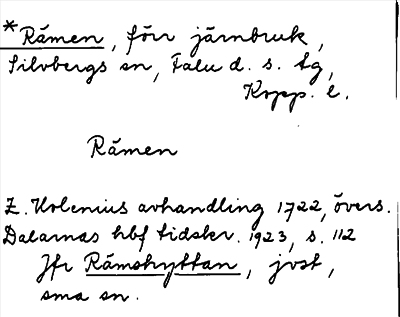 *Råmen, förr järnbruk,
Silvbergs sn, Falu d. s. tg,
Kopp. l.
Råmen
Z. Holenius avhandling 1722, övers.
Dalarnas hbf tidskr. 1923, s. 112
Jfr Råmshyttan, jvst,
sma sn.